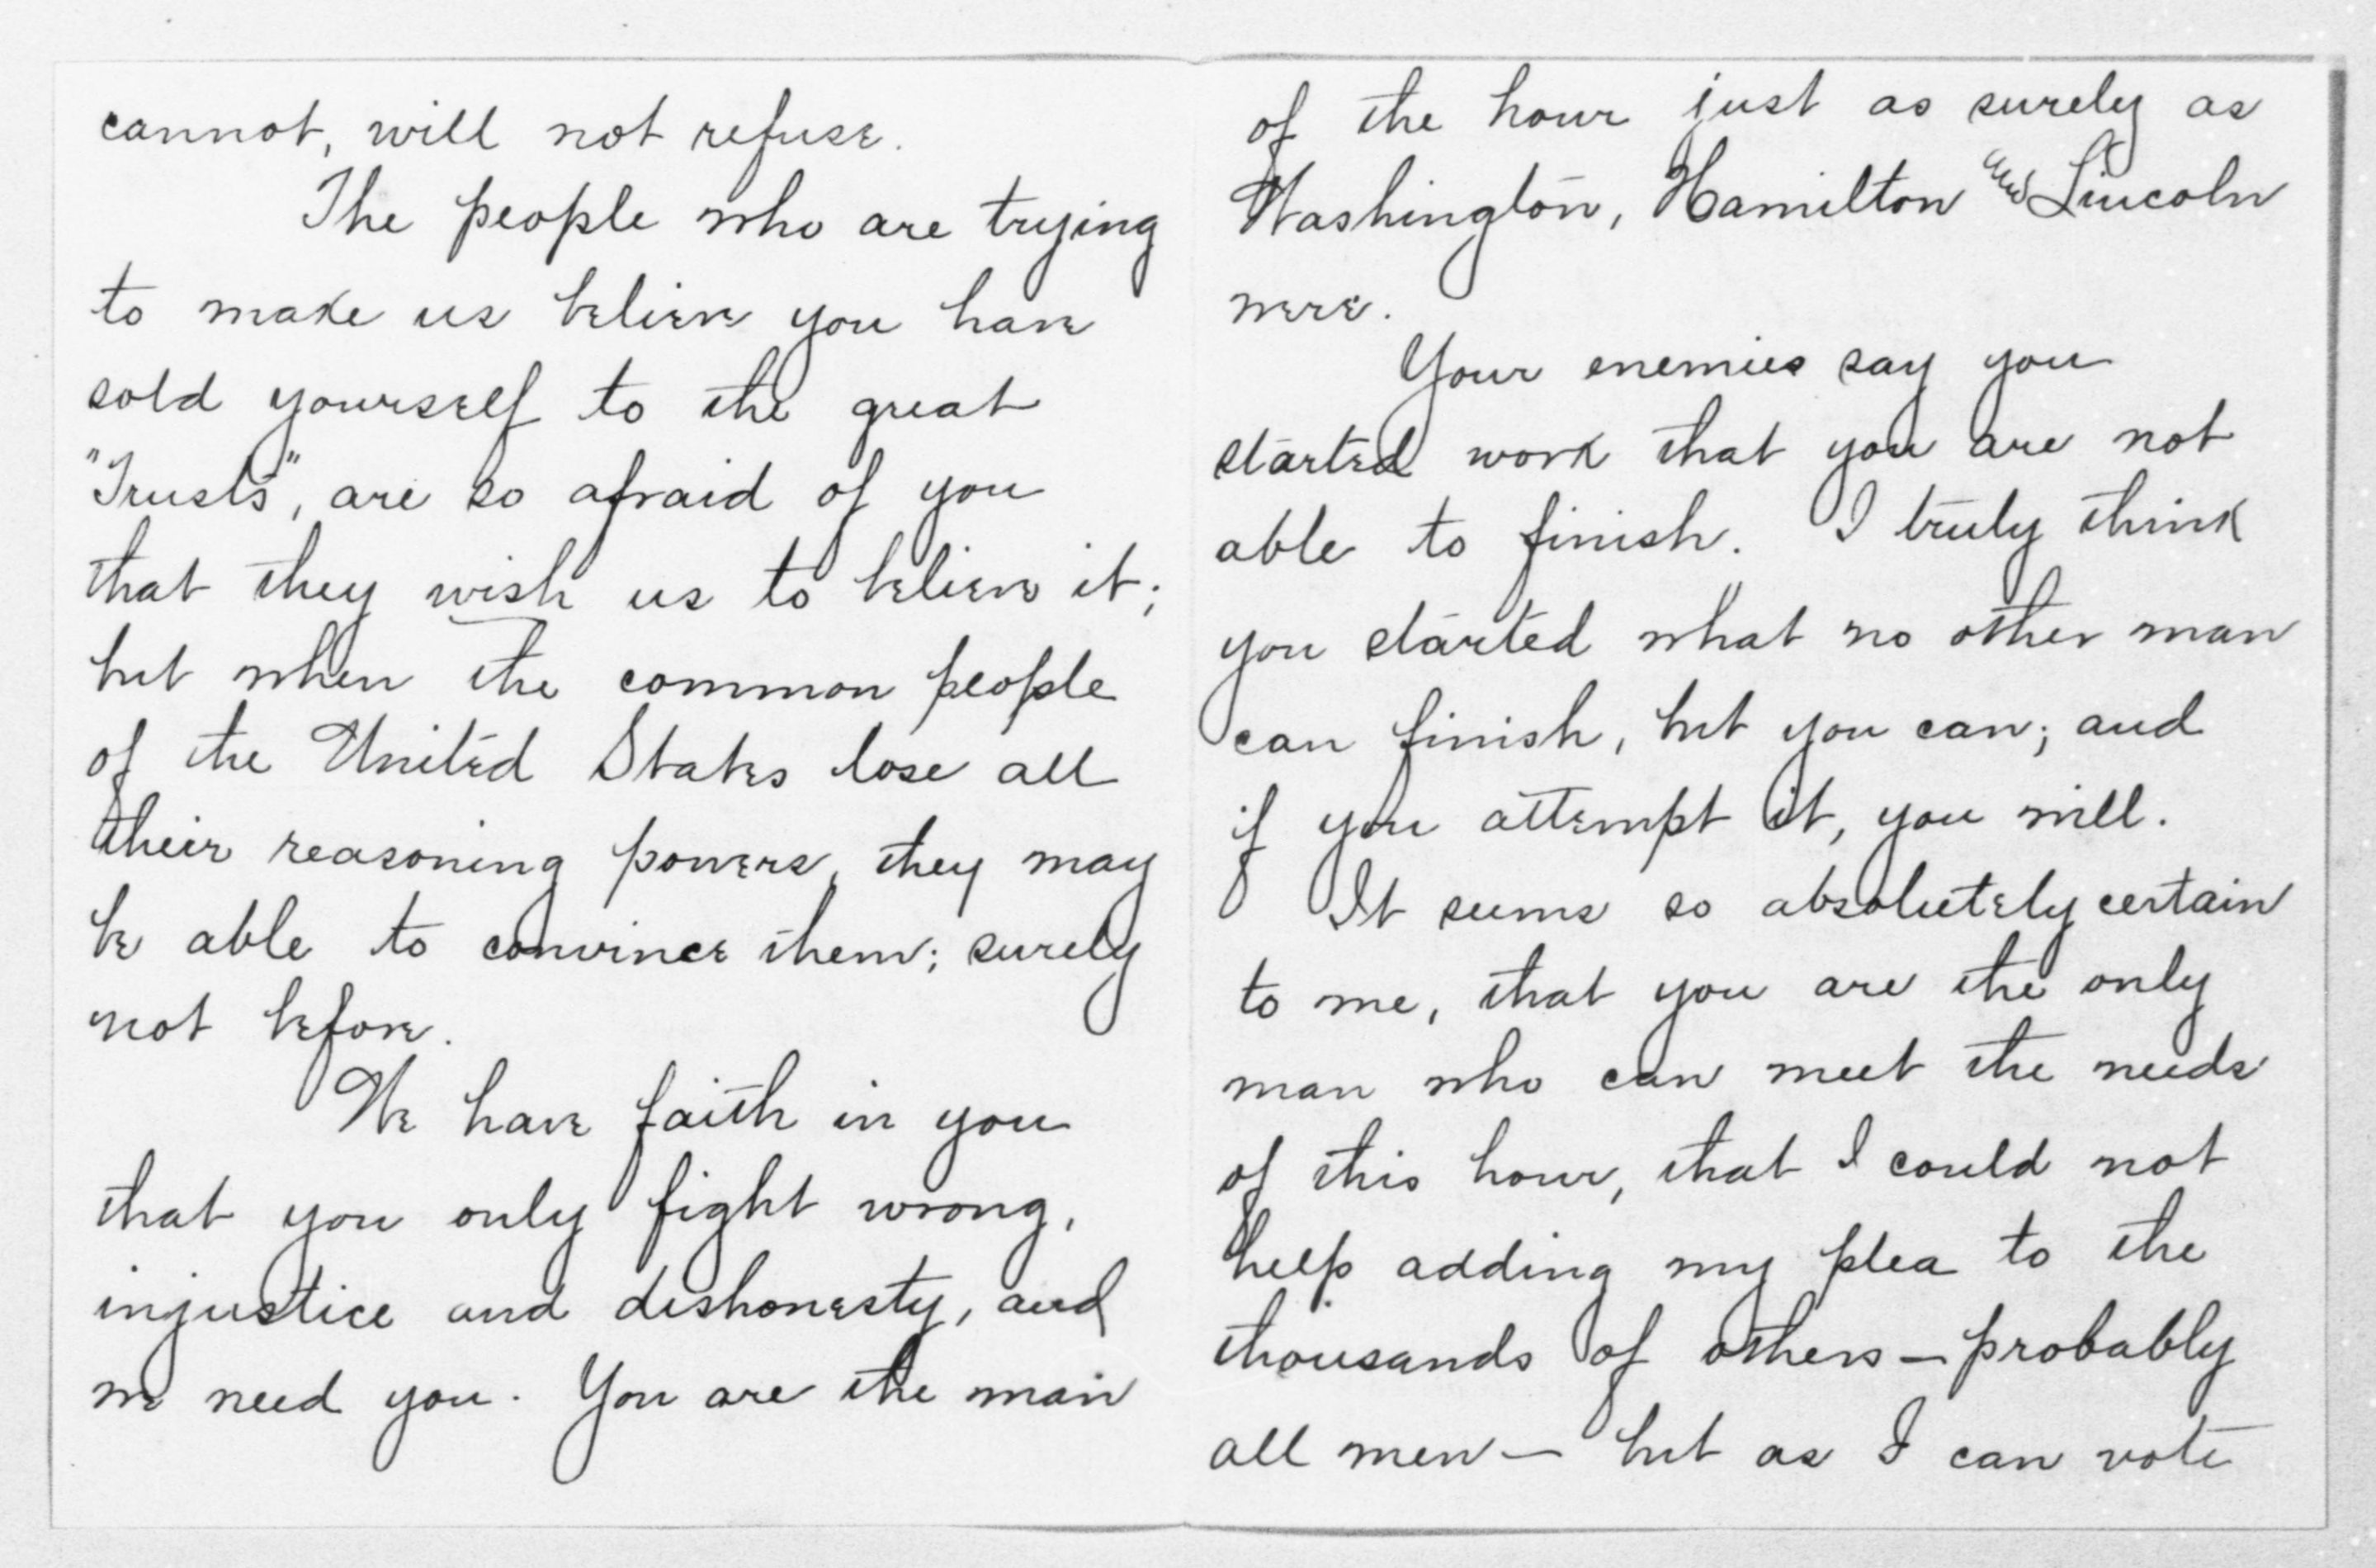 cannot, will not refuse.
The people who are trying
to make us believe you have
sold yourself to the great
"Trusts", are so afraid of you
that they wish us to believe it;
but when the common people
of the United States lose all
their reasoning powers, they may
be able to convince them; surely
not before.
We have faith in you
that you only fight wrong,
injustice and dishonesty, and
we need you. You are the man
of the hour just as surely as
Washington, Hamilton and Lincoln
were.
Your enemies say you
started work that you are not
able to finish. I truly think
you started what no other man
can finish, but you can; and
if you attempt it, you will.
It seems so absolutely certain
to me, that you are the only
man who can meet the needs
of this hour, that I could not
help adding my plea to the
thousands of others — probably
all men — but as I can vote